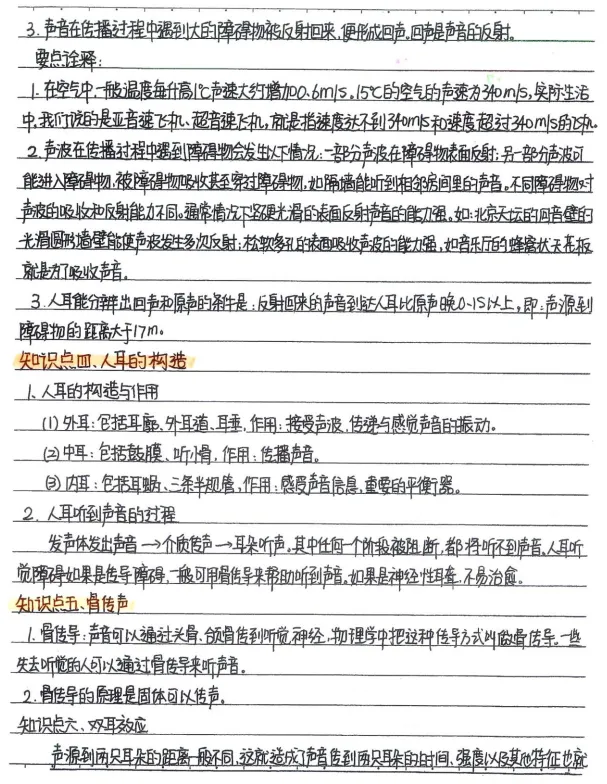 3. 声音在传播过程中遇到大的障碍物被反射回来,便形成回声。回声是声音的反射。
要点诠释:
1. 在空气中,一般温度每升高1℃声速大约增加0.6m/s。15℃的空气的声速为340m/s,实际生活
中,我们说的是亚音速飞机、超音速飞机,就是指速度达不到340m/s和速度超过340m/s的飞机。
2. 声波在传播过程中遇到障碍物会发生以下情况:一部分声波在障碍物表面反射;另一部分声波可
能进入障碍物,被障碍物吸收甚至穿过障碍物,如隔墙能听到相邻房间里的声音。不同障碍物对
声波的吸收和反射能力不同。通常情况下坚硬光滑的表面反射声音的能力强。如:北京天坛的回音壁的
光滑圆形墙壁能使声波发生多次反射;松软多孔的表面吸收声波的能力强,如音乐厅的蜂窝状天花板
就是为了吸收声音。
3. 人耳能分辨出回声和原声的条件是:反射回来的声音到达人耳比原声晚0.1S以上,即:声源到
障碍物的距离大于17m。
知识点四、人耳的构造
1、人耳的构造与作用
(1) 外耳:包括耳廓、外耳道、耳垂,作用:接受声波,传递与感觉声音的振动。
(2) 中耳:包括鼓膜、听小骨,作用:传播声音。
(3) 内耳:包括耳蜗、三条半规管,作用:感受声音信息,重要的平衡器。
2. 人耳听到声音的过程
发声体发出声音→介质传声→耳朵听声。其中任何一个阶段被阻断,都将听不到声音。人耳听
觉障碍如果是传导障碍,一般可用骨传导来帮助听到声音。如果是神经性耳聋,不易治愈。
知识点五、骨传声
1. 骨传导:声音可以通过头骨、颌骨传到听觉神经,物理学中把这种传导方式叫做骨传导。一些
失去听觉的人可以通过骨传导来听声音。
2. 骨传导的原理是固体可以传声。
知识点六、双耳效应
声源到两只耳朵的距离一般不同,这就造成了声音传到两只耳朵的时间、强度以及其他特征也就